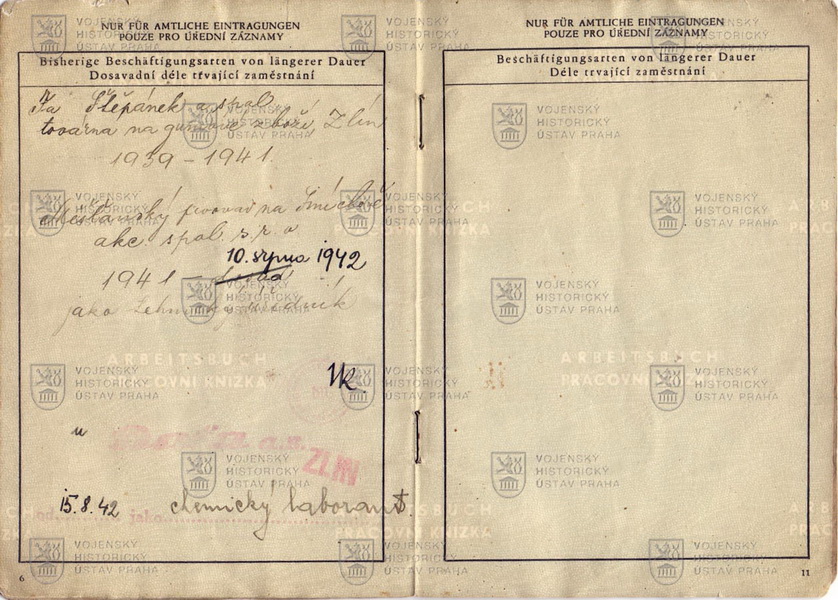 NUR FÜR AMTLICHE EINTRAGUNGEN
POUZE PRO ÚŘEDNÍ ZÁZNAMY
Bisherige Beschäftigungsarten von längerer Dauer
Dosavadní déle trvající zaměstnání
Fa Štěpánek a spol.
továrna na gumové zboží, Zlín
1939 – 1941.
Měšťanský pivovar na Smíchově
akc. spol. s. r. o
10. srpna 1942
1941 –
jako úředník
ARBEITSBUCH
PRACOVNÍ KNÍŽKA
u
a.s.
ZLÍN
15.8.42 jako chemický laborant
6
NUR FÜR AMTLICHE EINTRAGUNGEN
POUZE PRO ÚŘEDNÍ ZÁZNAMY
Beschäftigungsarten von längerer Dauer
Déle trvající zaměstnání
ARBEITSBUCH
PRACOVNÍ KNÍŽKA
11
VOJENSKÝ
HISTORICKÝ
ÚSTAV PRAHA